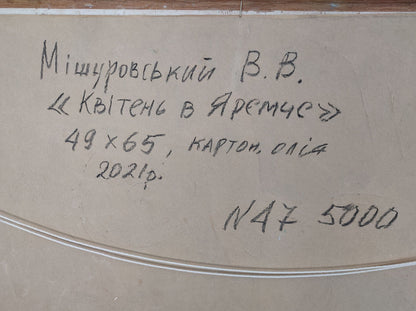 Мішуровський В.В.
«Квітень в Яремче»
49 х 65, картон, олія
2021р.
N47 5000